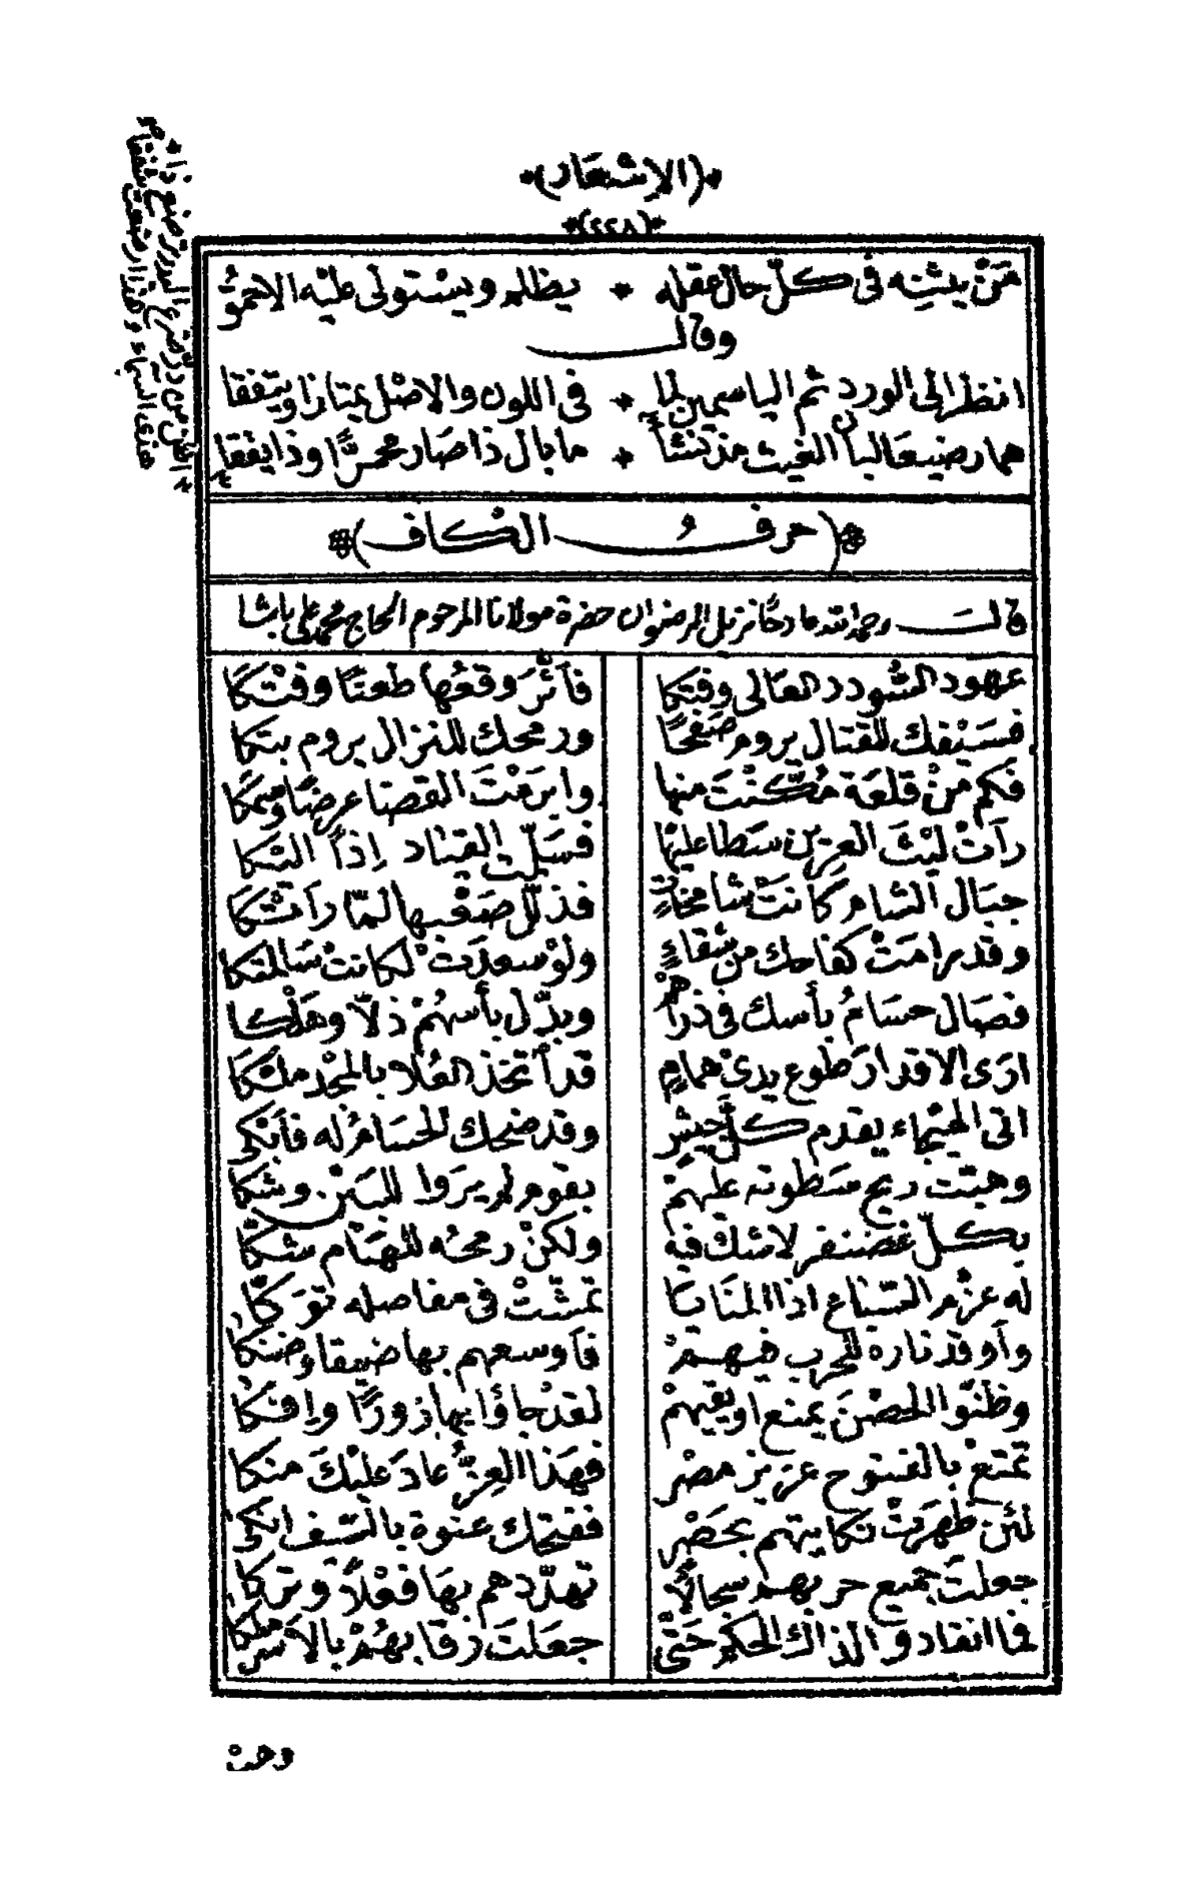 *(الاشعار)*
*(٢٢٨)*
مَنْ ينثنِه في كلّ حال عقله * يظلم ويسْتولى عليْه الاحمقُ
وقال
انظر الى الورد ثم الياسمين لما * فى اللون والاصْل يمتازا ويتفقا
هما رضيعا لبان الغيث مذ نشأَا * ما بال ذا صَار محمرًّا وذا يققا
(حرفُ الكاف)
قال رحمه الله مادحًا نزيل الرضوان حضرة مولانا المرحوم الحاج محمد على باشا
عهود السُّودد العَالى وفتكا فأثَّرَ وقعُها طعنًا وفتْكَا
فسَيْفك للقتال يروم صَفحًا ورمحك للنزال يروم بتكا
فكم مَنْ قلعَة مُكّنْتَ منها وابرَمْتَ القصا عرضًا وسمكا
رأتْ ليْثَ العرِين سَطا عليْها فسَلّت القياد اذاً التكا
جبَال الشام كَانتْ شامخاتٍ فذلّل صَعْبها لمّا رأتْكَا
وقد رامَتْ كفاحك من شقاءٍ ولوْ سعدَت لكانتْ سَالمتكا
فصَال حسَامُ بأسك فى ذراهمْ وبدّل بأسهُمْ ذلاّ وهَلْكا
ارَى الاقدارَ طوع يدىْ همامٍ قد اْتخذ العُلا بالمجْد ملكَا
اتى الهيْجاء يقدم كلّ جيْشٍ وقد ضحك الحسَامُ له فأبْكى
وهبّت ريح سَطوته عليهمْ بقوم لم يرَوا للبَيْن وشكا
بكلّ غضنفر لاشكّ فيه ولكنْ رمحُه للهَام شكّا
له عزْم السّباع اذا المنَايَا تمشّتْ فى مفاصله تورّكا
وأوقد ناره للحرب فيهمْ فأوسعهم بها ضيقا وضنْكا
وظنّوا الحصْنَ يمنع او يقيهمْ لقد جاؤا بها زورًا وافكا
تمتعْ بالفتوح عزيز مصْر فهَذا العِزُّ عادَ عليْكَ منكا
لئن ظهرَتْ نكايتهم بحَصْر ففتحك عنوة بالسّيف انكى
جعلتَ جميع حربهم سجالاً تهدّدهم بها فعْلاً وتركا
فما انقاد والذاك الحكم حَتّى جعَلتَ رقابهُمْ بالأسْر ملكا